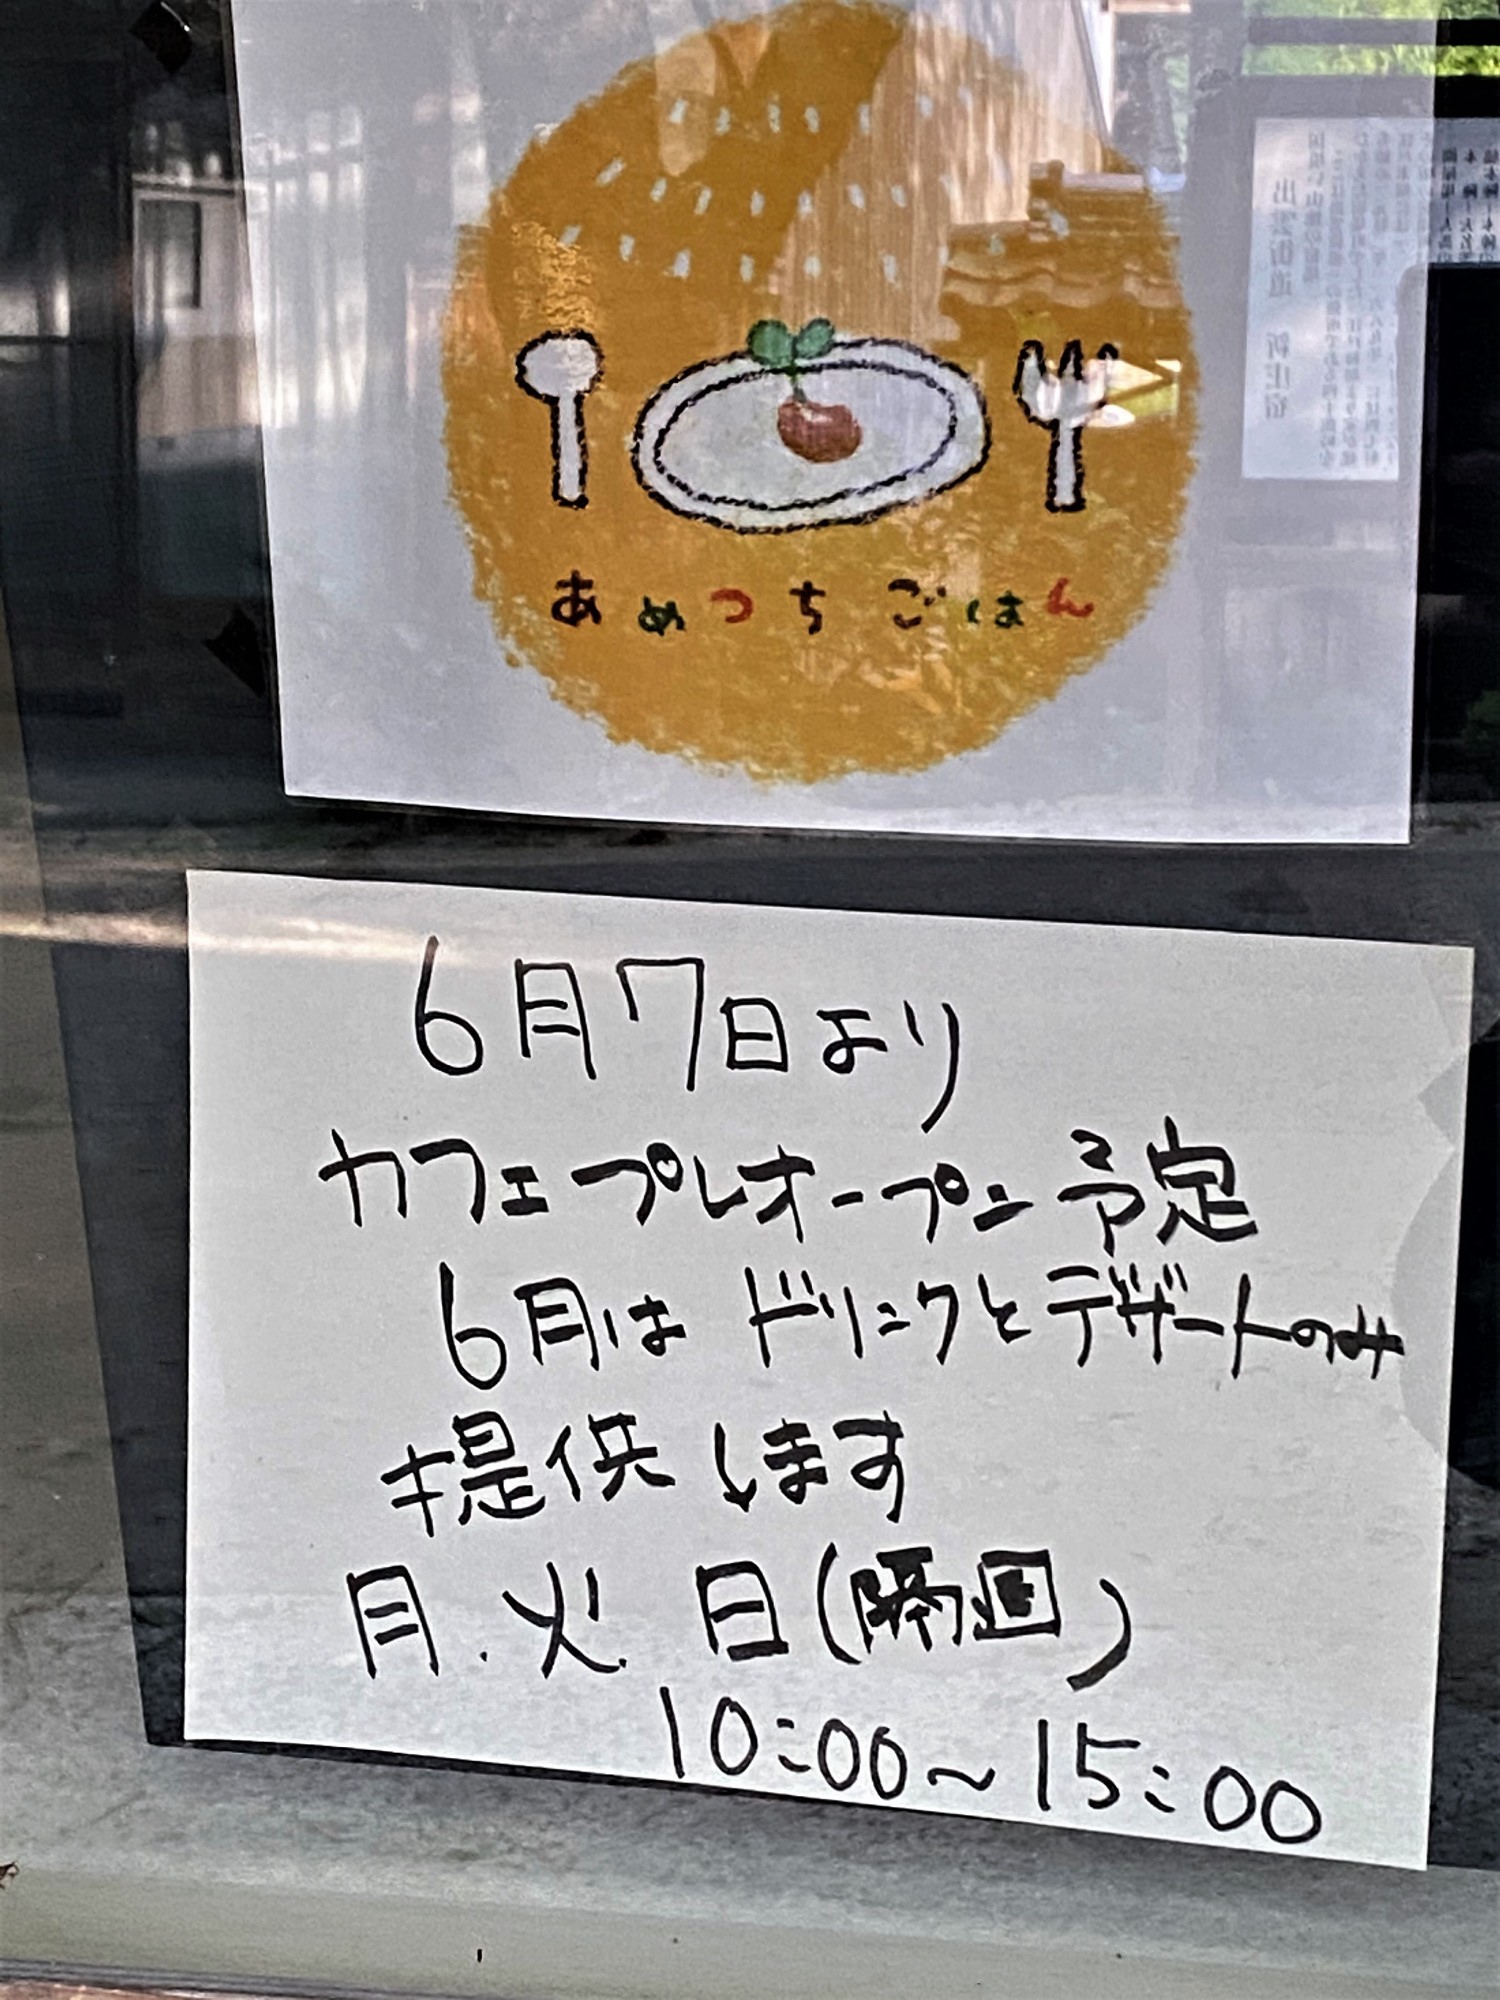 あめつちごはん
6月7日より
カフェプレオープン予定
6月は ドリンクとデザートのみ
提供します
月.火.日(隔週)
10:00〜15:00
出雲街道 新庄宿